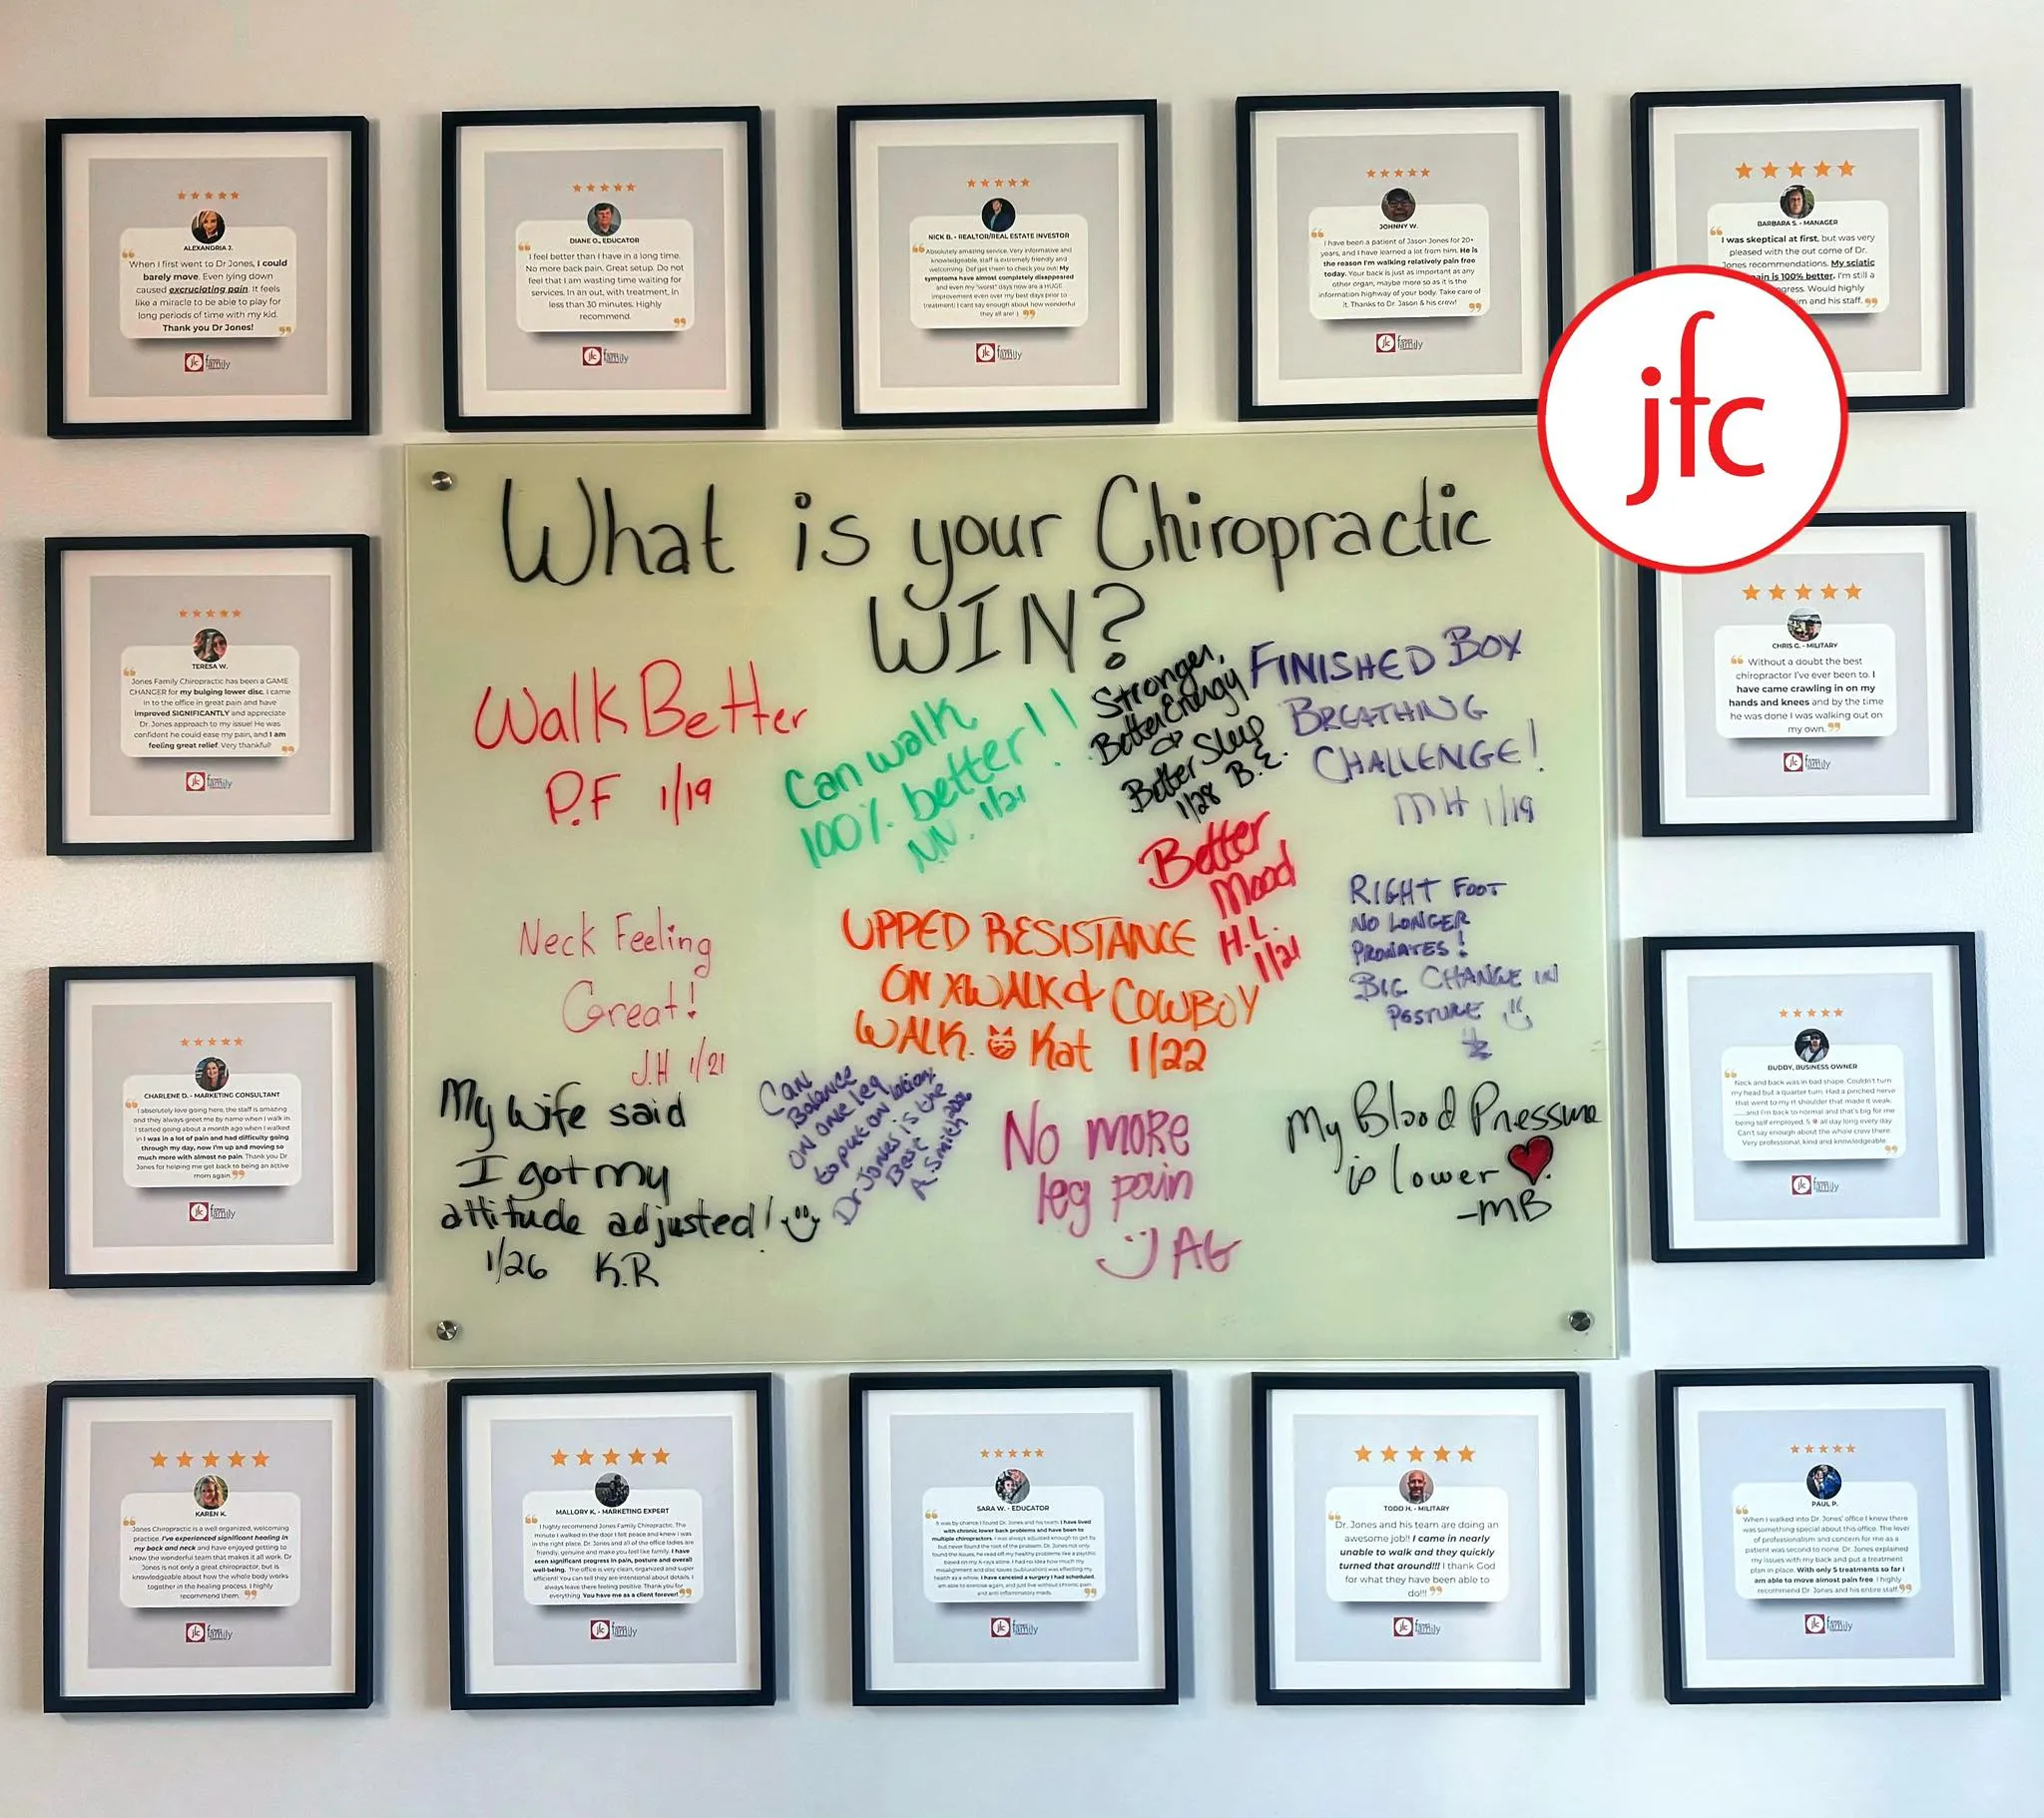 ALEXANDRIA J.
When I first went to Dr Jones, I could
barely move. Even lying down
caused excruciating pain. It feels
like a miracle to be able to play for
long periods of time with my kid.
Thank you Dr Jones!
jfc family
DIANE O., EDUCATOR
I feel better than I have in a long time.
No more back pain. Great setup. Do not
feel that I am wasting time waiting for
services. In an out, with treatment, in
less than 30 minutes. Highly
recommend.
jfc family
NICK B. - REALTOR/REAL ESTATE INVESTOR
Absolutely amazing service. Very informative and
knowledgeable, staff is extremely friendly and
welcoming. Def get them to check you out! My
symptoms have almost completely disappeared
and even my "worst" days now are a HUGE
improvement even over my best days prior to
treatment! I cant say enough about how wonderful
they all are! :)
jfc family
JOHNNY W.
I have been a patient of Jason Jones for 20+
years, and I have learned a lot from him. He is
the reason I'm walking relatively pain free
today. Your back is just as important as any
other organ, maybe more so as it is the
information highway of your body. Take care of
it. Thanks to Dr. Jason & his crew!
jfc family
BARBARA S. - MANAGER
I was skeptical at first, but was very
pleased with the out come of Dr.
Jones recommendations. My sciatic
pain is 100% better. I'm still a
gress. Would highly
im and his staff.
jfc
What is your Chiropractic
WIN?
Walk Better
P.F 1/19
Can walk
100% better!!
N.N. 1/21
Stronger,
Better Energy
Better Sleep
1/28 B.E.
FINISHED BOX
BREATHING
CHALLENGE!
MH 1/19
Better
Mood
H.L.
1/21
Neck Feeling
Great!
J.H 1/21
UPPED RESISTANCE
ON X-WALK & COWBOY
WALK. Kat 1/22
RIGHT FOOT
NO LONGER
PRONATES!
BIG CHANGE IN
POSTURE
My wife said
I got my
attitude adjusted!
1/26 K.R
Can
Balance
on one leg
to put on lotion,
Dr Jones is the
Best
A. Smith 2026
No more
leg pain
AG
My Blood Pressure
is lower
-MB
TERESA W.
Jones Family Chiropractic has been a GAME
CHANGER for my bulging lower disc. I came
in to the office in great pain and have
improved SIGNIFICANTLY and appreciate
Dr. Jones approach to my issue! He was
confident he could ease my pain, and I am
feeling great relief. Very thankful!
jfc family
CHRIS G. - MILITARY
Without a doubt the best
chiropractor I've ever been to. I
have came crawling in on my
hands and knees and by the time
he was done I was walking out on
my own.
jfc family
CHARLENE D. - MARKETING CONSULTANT
I absolutely love going here, the staff is amazing
and they always greet me by name when I walk in.
I started going about a month ago when I walked
in I was in a lot of pain and had difficulty going
through my day, now I'm up and moving so
much more with almost no pain. Thank you Dr
Jones for helping me get back to being an active
mom again.
jfc family
BUDDY, BUSINESS OWNER
Neck and back was in bad shape. Couldn't turn
my head but a quarter turn. Had a pinched nerve
that went to my rt shoulder that made it weak.
......and I'm back to normal and that's big for me
being self employed. 5 all day long every day
Can't say enough about the whole crew there.
Very professional, kind and knowledgeable
jfc family
KAREN K.
Jones Chiropractic is a well organized, welcoming
practice. I've experienced significant healing in
my back and neck and have enjoyed getting to
know the wonderful team that makes it all work. Dr
Jones is not only a great chiropractor, but is
knowledgeable about how the whole body works
together in the healing process. I highly
recommend them.
jfc family
MALLORY K. - MARKETING EXPERT
I highly recommend Jones Family Chiropractic. The
minute I walked in the door I felt peace and knew I was
in the right place. Dr. Jones and all of the office ladies are
friendly, genuine and make you feel like family. I have
seen significant progress in pain, posture and overall
well-being. The office is very clean, organized and super
efficient! You can tell they are intentional about details. I
always leave there feeling positive. Thank you for
everything. You have me as a client forever!
jfc family
SARA W. - EDUCATOR
It was by chance I found Dr. Jones and his team. I have lived
with chronic lower back problems and have been to
multiple chiropractors. I was always adjusted enough to get by
but never found the root of the problem. Dr. Jones not only
found the issues, he read off my healthy problems like a psychic
based on my X-rays alone. I had no idea how much my
misalignment and disc issues (subluxation) was effecting my
health as a whole. I have canceled a surgery I had scheduled,
am able to exercise again, and just live without chronic pain
and anti inflammatory meds.
jfc family
TODD H. - MILITARY
Dr. Jones and his team are doing an
awesome job!! I came in nearly
unable to walk and they quickly
turned that around!!! I thank God
for what they have been able to
do!!!
jfc family
PAUL P.
When I walked into Dr. Jones' office I knew there
was something special about this office. The level
of professionalism and concern for me as a
patient was second to none. Dr. Jones explained
my issues with my back and put a treatment
plan in place. With only 5 treatments so far I
am able to move almost pain free. I highly
recommend Dr. Jones and his entire staff.
jfc family